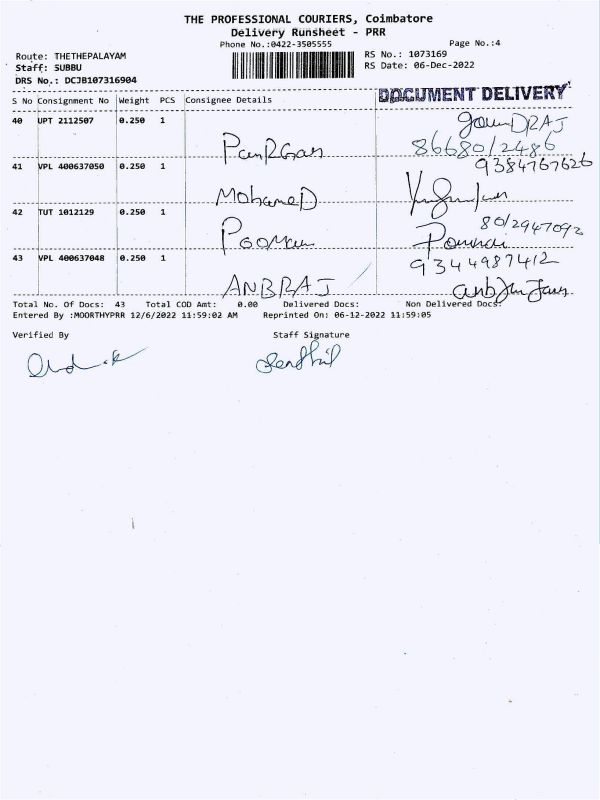 THE PROFESSIONAL COURIERS, Coimbatore
Delivery Runsheet - PRR
Phone No.:0422-3505555
Page No.:4
Route: THETHEPALAYAM
RS No.: 1073169
Staff: SUBBU
RS Date: 06-Dec-2022
DRS No.: DCJB107316904
DOCUMENT DELIVERY
S No Consignment No Weight PCS Consignee Details
40 UPT 2112507 0.250 1
86680/2486
41 VPL 400637050 0.250 1
9384767626
MohameD
42 TUT 1012129 0.250 1
80/2947092
43 VPL 400637048 0.250 1
9344987412
ANBRAJ
Total No. Of Docs: 43 Total COD Amt: 0.00 Delivered Docs: Non Delivered Docs:
Entered By :MOORTHYPRR 12/6/2022 11:59:02 AM Reprinted On: 06-12-2022 11:59:05
Verified By Staff Signature